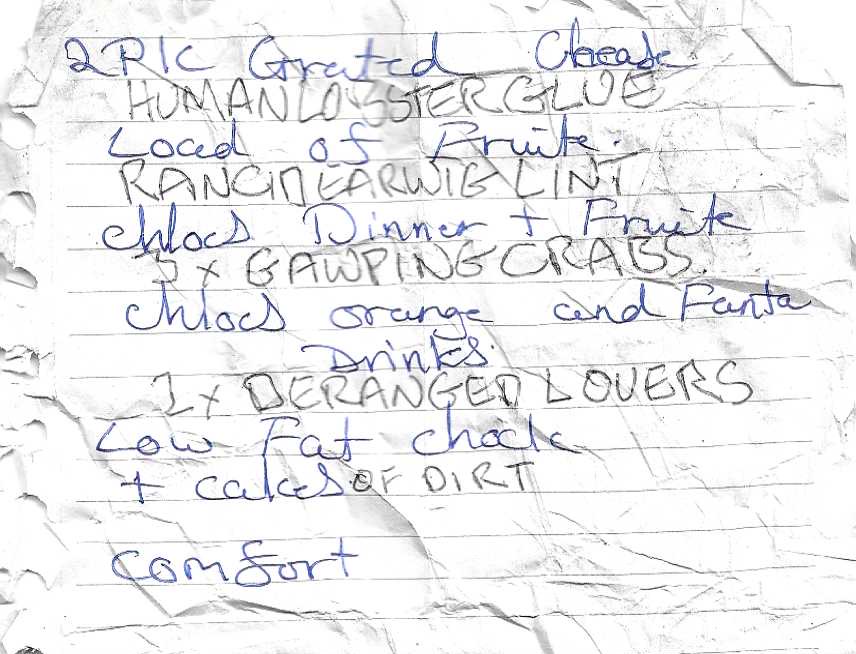 2PK Grated Chease
HUMAN LOBSTER GLUE
Load of Fruite.
RANCID EARWIG LINT
chloes Dinner + Fruite
5 x GAWPING CRABS.
chloes orange and Fanta
Drinks.
1 x DERANGED LOVERS
Low Fat chock
+ cakes OF DIRT
comfort